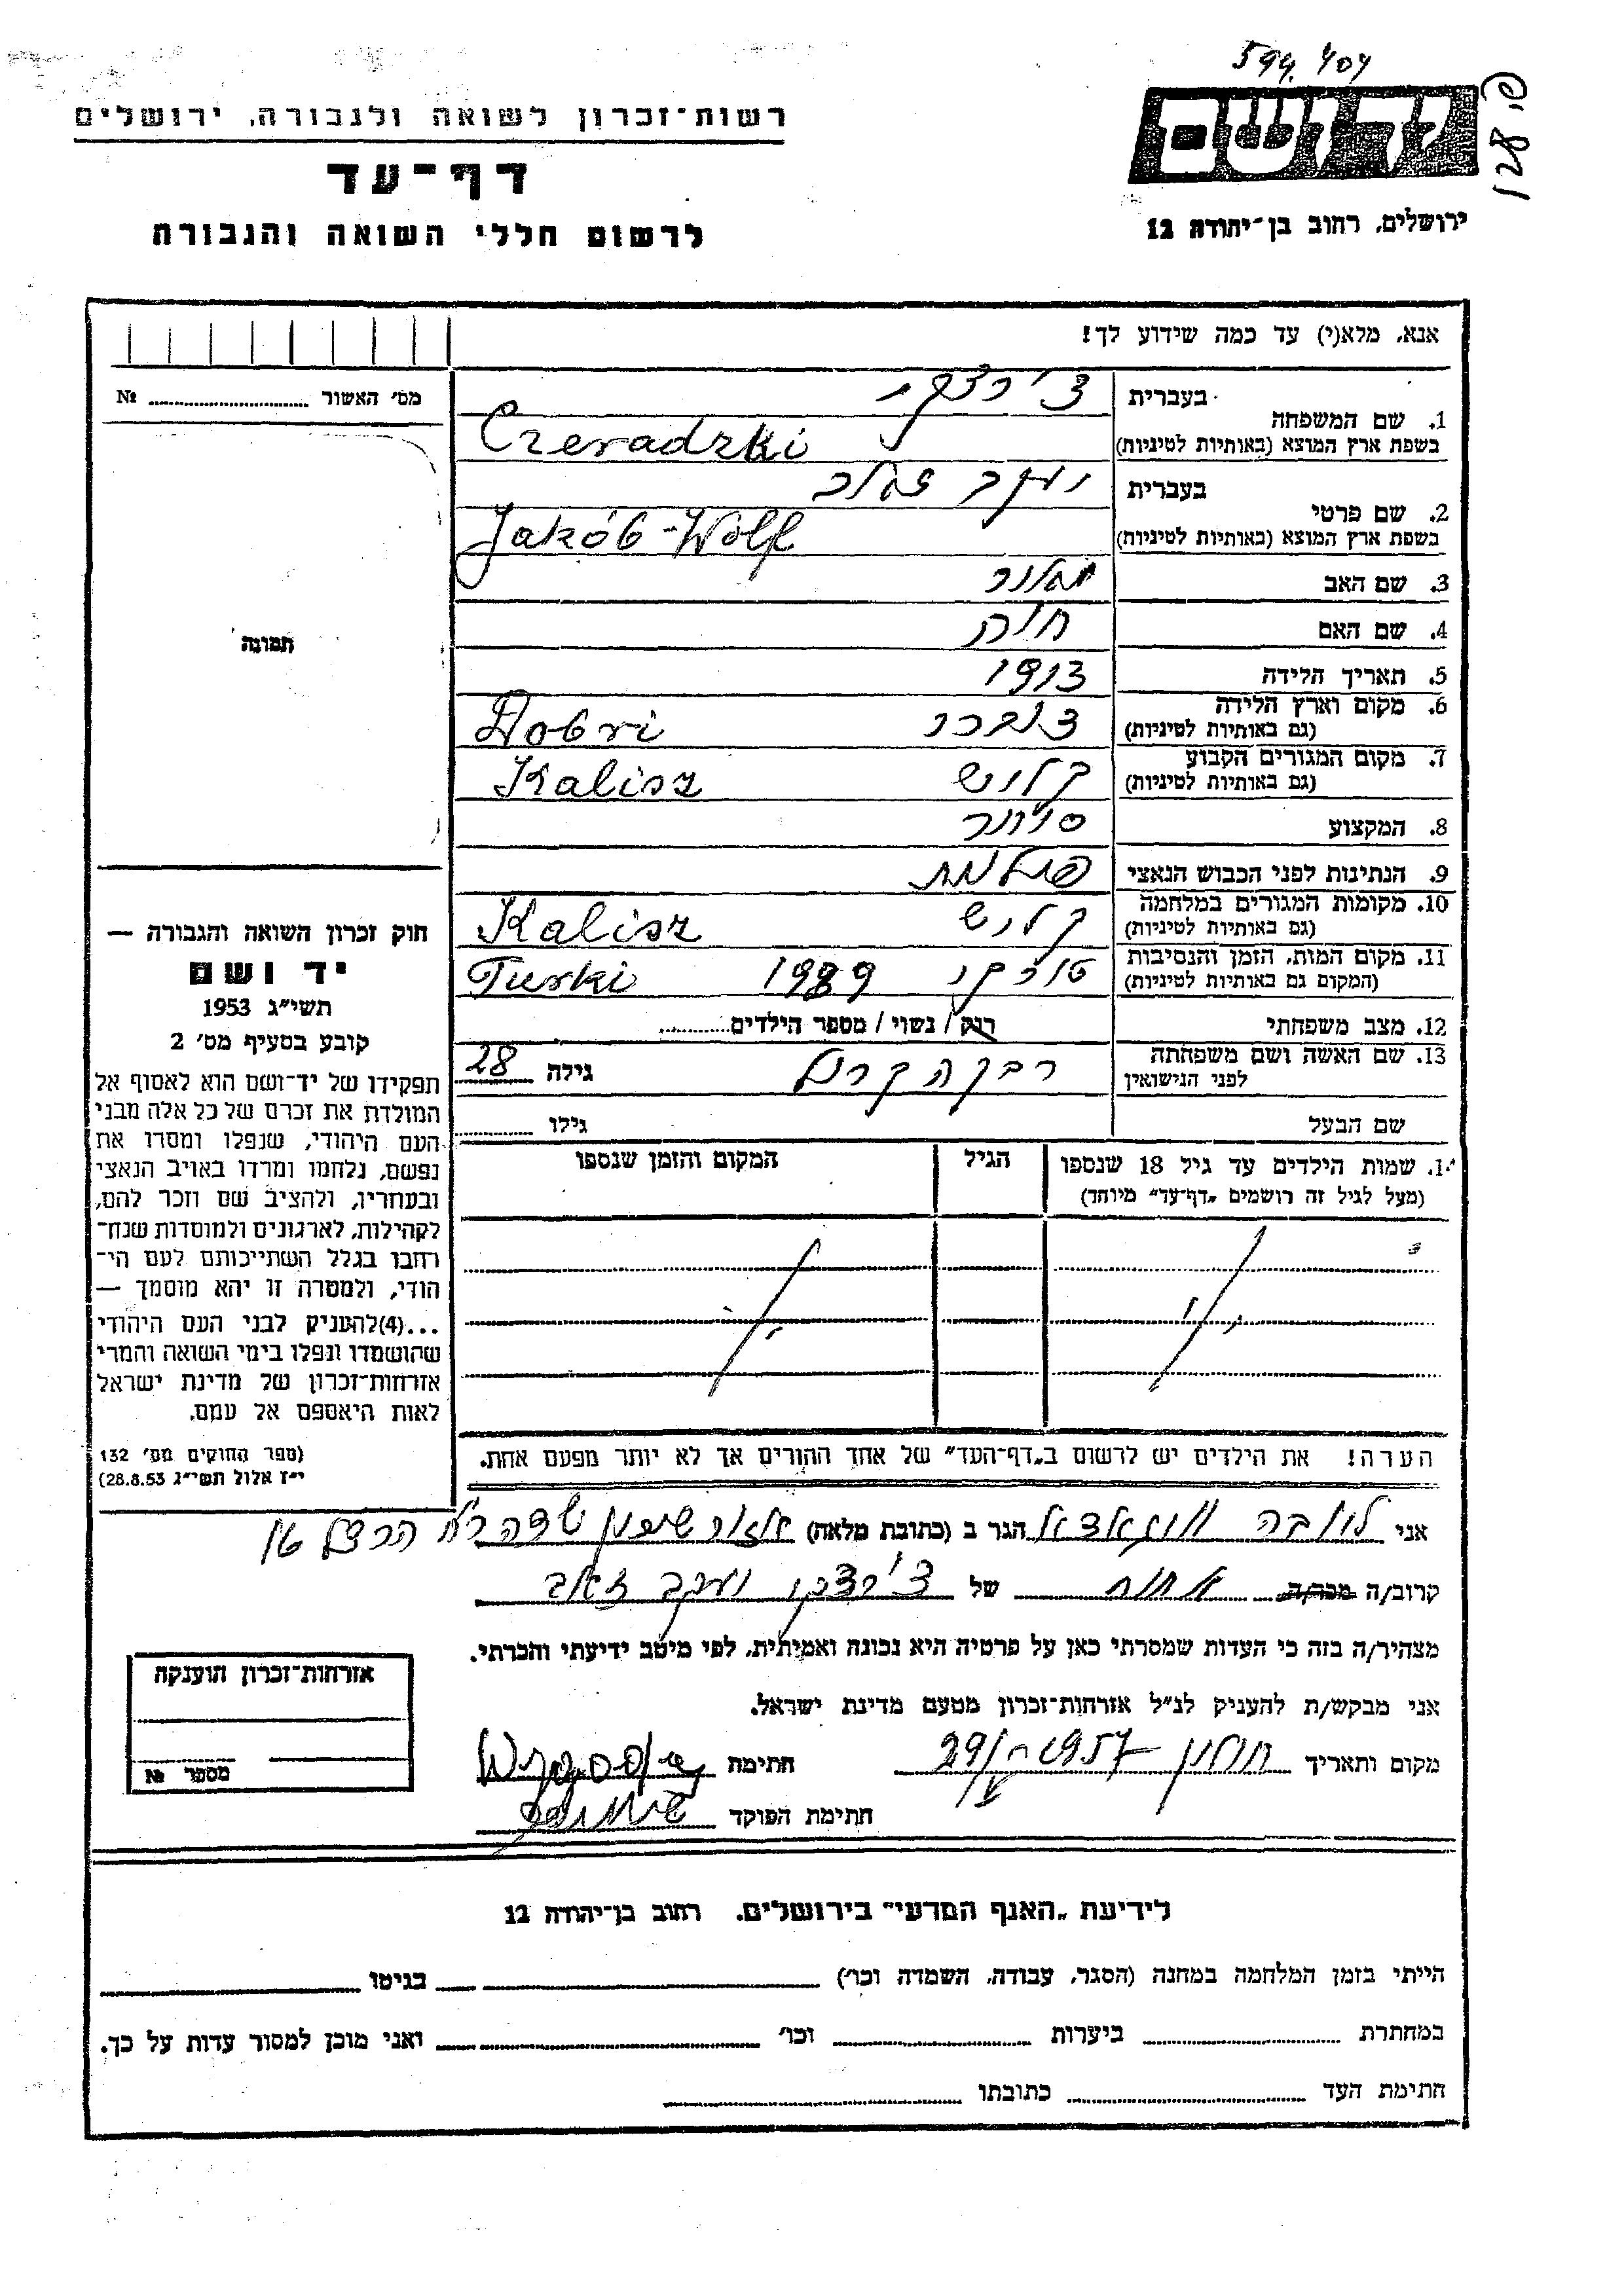 599.404
יד ושם
ירושלים, רחוב בן־יהודה 12
רשות־זכרון לשואה ולגבורה, ירושלים
דף־עד
לרשום חללי השואה והגבורה
אנא, מלא(י) עד כמה שידוע לך!
1. שם המשפחה
בעברית
בשפת ארץ המוצא (באותיות לטיניות)
Czeradzki
2. שם פרטי
בעברית יעקב זאב
בשפת ארץ המוצא (באותיות לטיניות)
Jakób-Wolf
3. שם האב
4. שם האם חוה
5. תאריך הלידה 1913
6. מקום וארץ הלידה
(גם באותיות לטיניות) Dobri
7. מקום המגורים הקבוע
(גם באותיות לטיניות) קליש Kalisz
8. המקצוע
9. הנתינות לפני הכבוש הנאצי
10. מקומות המגורים במלחמה
(גם באותיות לטיניות) קליש Kalisz
11. מקום המות, הזמן והנסיבות
(המקום גם באותיות לטיניות) טורקי 1939 Turki
12. מצב משפחתי רווק / נשוי / מספר הילדים
13. שם האשה ושם משפחתה
לפני הנישואין רבקה גילה 28
שם הבעל גילו
שמות הילדים עד גיל 18 שנספו הגיל המקום והזמן שנספו
(מעל לגיל זה רושמים „דף־עד" מיוחד)
הערה! את הילדים יש לרשום ב„דף־העד" של אחד ההורים אך לא יותר מפעם אחת.
מס' האשור №
תמונה
חוק זכרון השואה והגבורה —
יד ושם
תשי״ג 1953
קובע בסעיף מס' 2
תפקידו של יד־ושם הוא לאסוף אל
המולדת את זכרם של כל אלה מבני
העם היהודי, שנפלו ומסרו את
נפשם, נלחמו ומרדו באויב הנאצי
ובעוזריו, ולהציב שם וזכר להם,
לקהילות, לארגונים ולמוסדות שנח־
רבו בגלל השתייכותם לעם הי־
הודי, ולמטרה זו יהא מוסמך —
...(4)להעניק לבני העם היהודי
שהושמדו ונפלו בימי השואה והמרי
אזרחות־זכרון של מדינת ישראל
לאות היאספם אל עמם.
(ספר החוקים מס' 132
י״ז אלול תשי״ג 28.8.53)
אני הגר ב (כתובת מלאה)
קרוב/ה מכר/ה של יעקב זאב
מצהיר/ה בזה כי העדות שמסרתי כאן על פרטיה היא נכונה ואמיתית, לפי מיטב ידיעתי והכרתי.
אני מבקש/ת להעניק לנ״ל אזרחות־זכרון מטעם מדינת ישראל.
מקום ותאריך חולון חתימה
חתימת הפוקד
אזרחות־זכרון הוענקה
מספר №
לידיעת „האגף המדעי" בירושלים, רחוב בן־יהודה 12
הייתי בזמן המלחמה במחנה (הסגר, עבודה, השמדה וכו') בגיטו
במחתרת ביערות וכו' ואני מוכן למסור עדות על כך.
חתימת העד כתובתו